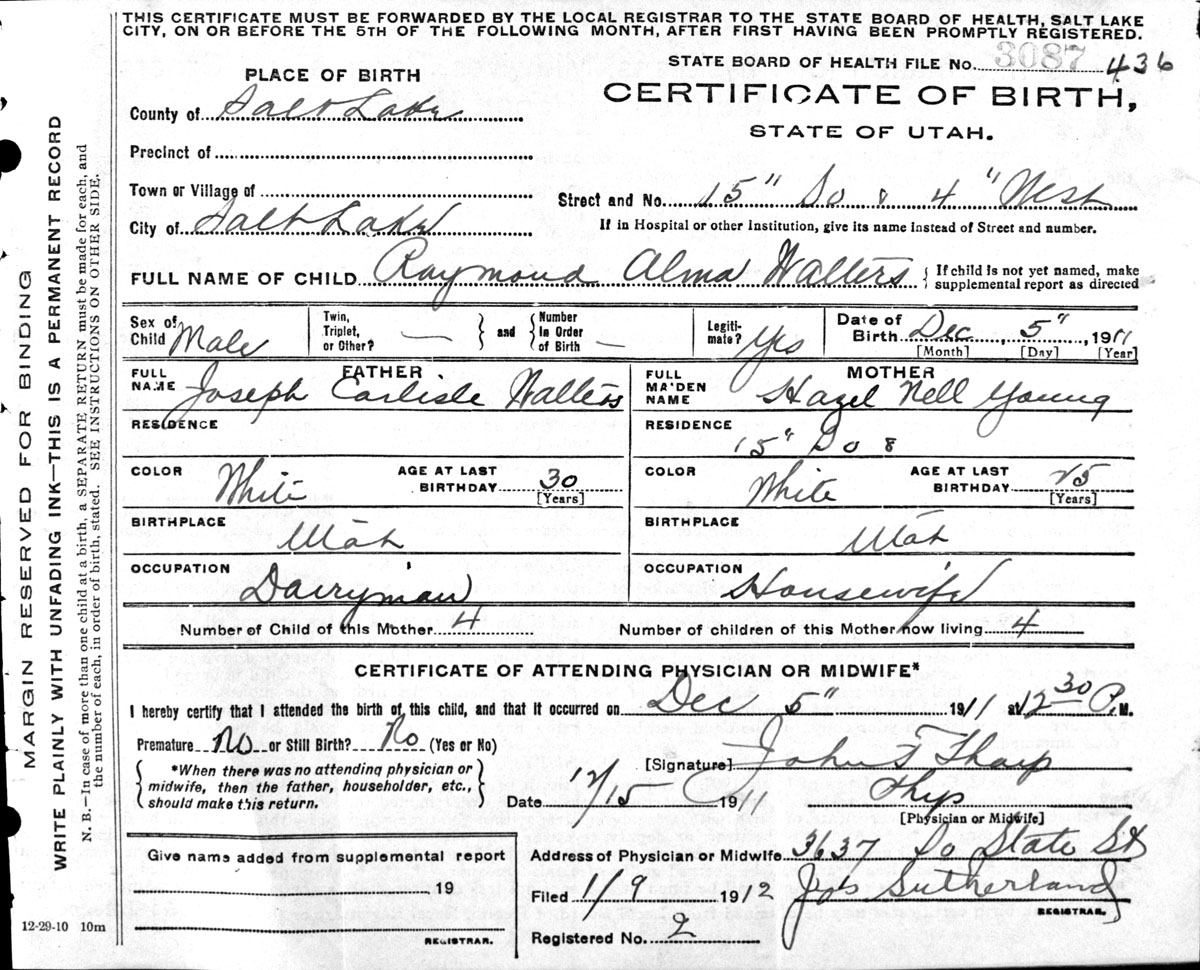 THIS CERTIFICATE MUST BE FORWARDED BY THE LOCAL REGISTRAR TO THE STATE BOARD OF HEALTH, SALT LAKE
CITY, ON OR BEFORE THE 5TH OF THE FOLLOWING MONTH, AFTER FIRST HAVING BEEN PROMPTLY REGISTERED.
STATE BOARD OF HEALTH FILE No. 3087 436
PLACE OF BIRTH
CERTIFICATE OF BIRTH,
STATE OF UTAH.
County of Salt Lake
Precinct of
Town or Village of
Street and No. 15" So & 4" West
City of Salt Lake
If in Hospital or other Institution, give its name instead of Street and number.
FULL NAME OF CHILD Raymond Alma Walters { If child is not yet named, make
supplemental report as directed
Sex of Child Male Twin, Triplet, or Other? — } and { Number In Order of Birth — Legiti-mate? Yes Date of Birth Dec, 5", 1911
[Month] [Day] [Year]
FATHER MOTHER
FULL NAME Joseph Carlisle Walters FULL MAIDEN NAME Hazel Nell Young
RESIDENCE RESIDENCE 15" So &
COLOR White AGE AT LAST BIRTHDAY 30 [Years] COLOR White AGE AT LAST BIRTHDAY 25 [Years]
BIRTHPLACE Utah BIRTHPLACE Utah
OCCUPATION Dairyman OCCUPATION Housewife
Number of Child of this Mother 4 Number of children of this Mother now living 4
CERTIFICATE OF ATTENDING PHYSICIAN OR MIDWIFE*
I hereby certify that I attended the birth of this child, and that it occurred on Dec 5" 1911 at 12 30 P. M.
Premature No or Still Birth? No (Yes or No)
[Signature] John T Tharp
{ *When there was no attending physician or
midwife, then the father, householder, etc.,
should make this return. }
Date 12/15 1911 Phys
[Physician or Midwife]
Give name added from supplemental report
19
REGISTRAR.
Address of Physician or Midwife 3637 So State St
Filed 1/9 1912 Jos Sutherland
REGISTRAR.
Registered No. 2
12-29-10 10m
MARGIN RESERVED FOR BINDING
WRITE PLAINLY WITH UNFADING INK—THIS IS A PERMANENT RECORD
N. B.—In case of more than one child at a birth, a SEPARATE RETURN must be made for each, and
the number of each, in order of birth, stated. SEE INSTRUCTIONS ON OTHER SIDE.